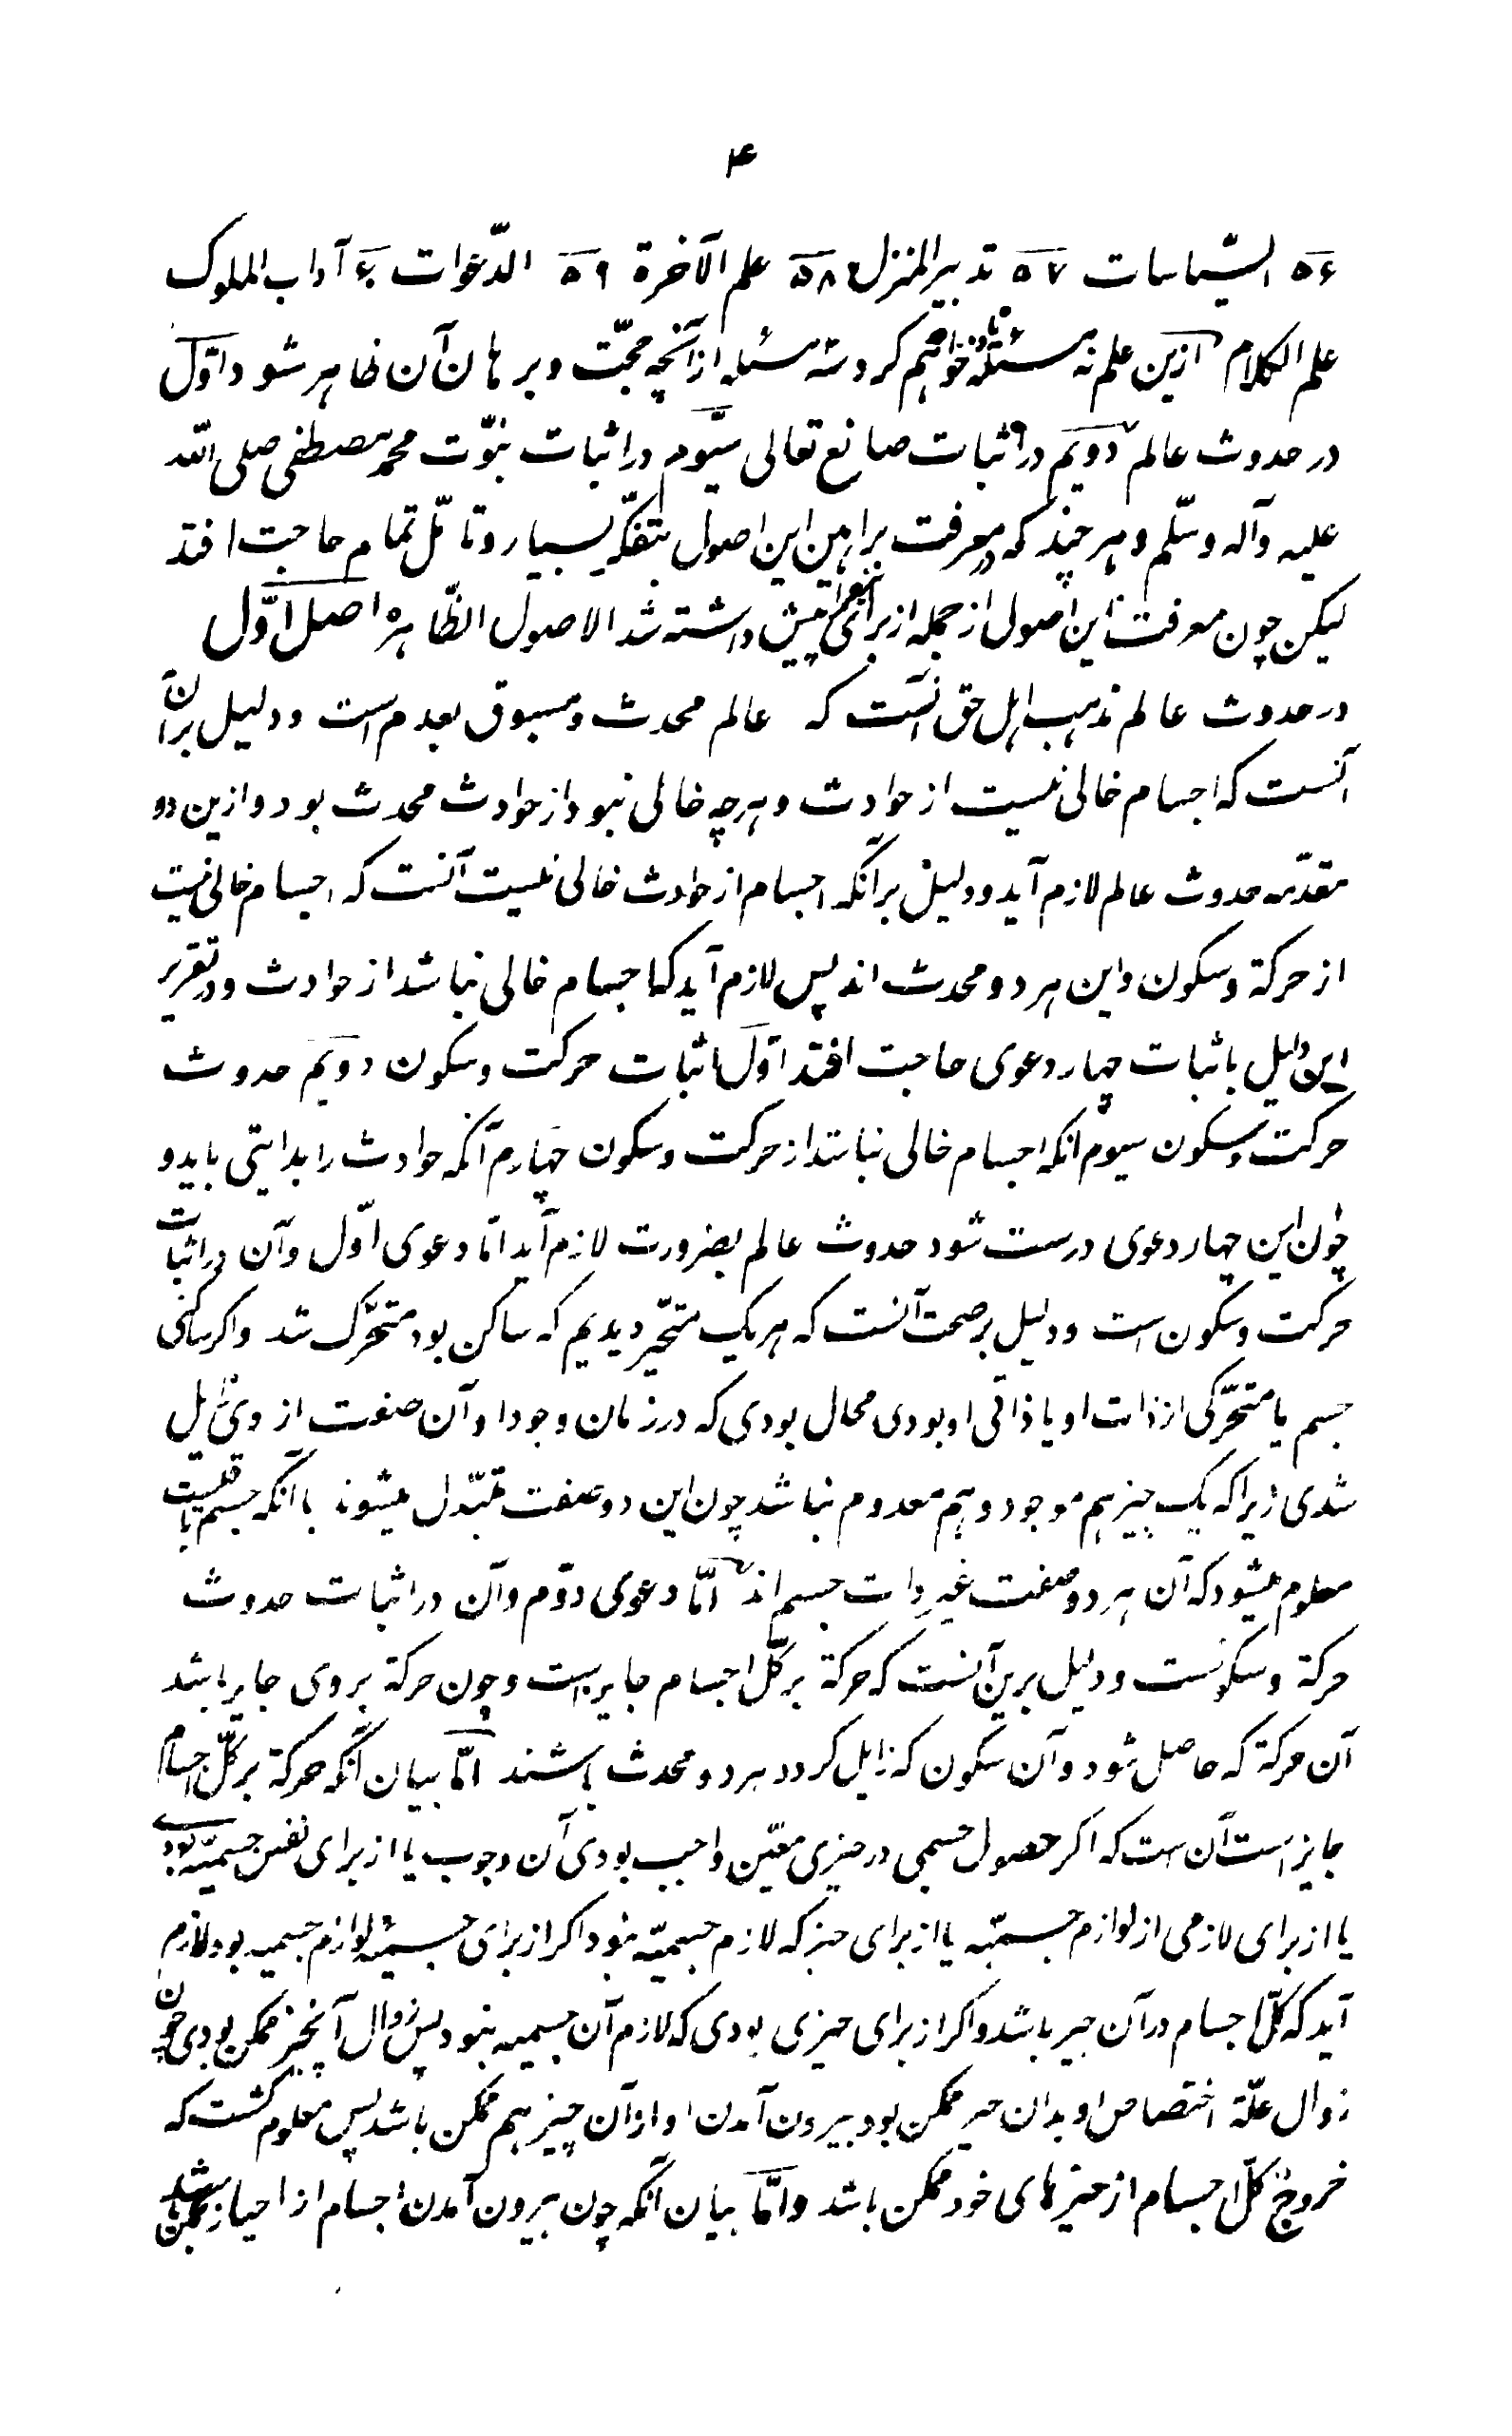 ۴
۵۶ السّیاسات ۵۷ تدبیر المنزل ۵۸ علم الآخرة ۵۹ الدّعوات ۶۰ آداب الملوک
علم الکلام ازین علم نه مسئله خواهم کرد سه مسئله از آنچه حجّت و برهان آن ظاهر شود اوّل
در حدوث عالم دویم در اثبات صانع تعالی سیّوم در اثبات نبوّت محمد مصطفی صلی الله
علیه وآله وسّلم و هر چند که در معرفت براهین این اصول بتفکّر بسیار و تأمّل تمام حاجت افتد
لیکن چون معرفت این اصولی از جمله از برای پیش داشته شد الاصول الظّاهره اصل اوّل
در حدوث عالم مذهب اهل حق آنست که عالم محدث و مسبوق بعدم است و دلیل بر آن
آنست که اجسام خالی نیست از حوادث و هرچه خالی نبود از حوادث محدث بود و ازین دو
مقدّمه حدوث عالم لازم آید و دلیل بر آنکه اجسام از حوادث خالی نیست آنست که اجسام خالی نیست
از حرکة و سکون و این هر دو محدث اند پس لازم آید که اجسام خالی نباشد از حوادث و در تقریر
این دلیل باثبات چهار دعوی حاجت افتد اوّل اثبات حرکت و سکون دویم حدوث
حرکت و سکون سیوم آنکه اجسام خالی نباشد از حرکت و سکون چهارم آنکه حوادث را بدایتی باید و
چون این چهار دعوی درست شود حدوث عالم بضرورت لازم آید امّا دعوی اوّل و آن در اثبات
حرکت و سکون است و دلیل بر صحت آنست که هر یک متحیّز دیدیم که ساکن بود متحرّک شد و اکر ساکنی
جسم یا متحرّکی از ذات او یا ذاتی او بودی محال بودی که در زمان وجود او آن صفت از وی زایل
شدی زیرا که یک چیز هم موجود و هم معدوم نباشد چون این دو صفت متبدّل میشوند با آنکه جسم باقیست
معلوم میشود که آن هر دو صفت غیر ذات جسم اند امّا دعوی دوّم و آن در اثبات حدوث
حرکة و سکونست و دلیل برین آنست که حرکة بر کلّ اجسام جایز است و چون حرکة بر وی جایز باشد
آن حرکة که حاصل شود و آن سکون که زایل کردد هر دو محدث باشند امّا بیان آنکه حرکة بر کلّ اجسام
جایز است آن است که اکر حصول جسمی در حیزی معیّن واجب بودی آن وجوب یا از برای نفس جسمیّة بودی
یا از برای لازمی از لوازم جسمیّه یا از برای حیز که لازم جسمیّة نبود اکر از برای جسمیّة لوازم جسمیه بود لازم
آید که کلّ اجسام در آن حیز باشد و اکر از برای حیزی بودی که لازم آن جسمیه نبود پس زوال آنچیز ممکن بودی چون
زوال علّة اختصاص او بدان حیز ممکن بود بیرون آمدن او از آن چیز هم ممکن باشد پس معلوم کشت که
خروج کلّ اجسام از حیزهای خود ممکن باشد و امّا بیان آنکه چون بیرون آمدن اجسام از احیاز ممکن باشد